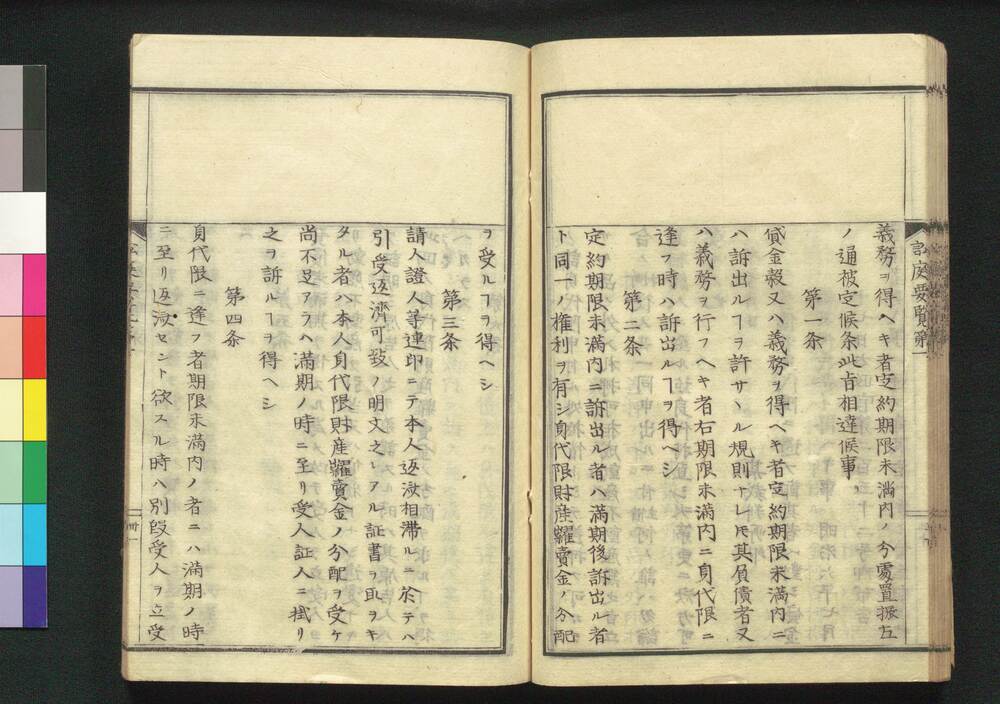 訟庭要覧第一
義務ヲ得ヘキ者定約期限未満内ノ分處置振左
ノ通被定候条此旨相違候事
第一条
貸金穀又ハ義務ヲ得ヘキ者定約期限未満内ニ
ハ訴出ルヿヲ許サヽル規則ナレ𪜈其負債者又
ハ義務ヲ行フヘキ者右期限未満内ニ身代限ニ
逢フ時ハ訴出ルヿヲ得ヘシ
第二条
定約期限未満内ニ訴出ル者ハ満期後訴出ル者
ト同一ノ権利ヲ有シ身代限財産糶賣金ノ分配
ヲ受ルヿヲ得ヘシ
第三条
請人證人等連印ニテ本人返済相滞ルニ於テハ
引受返濟可致ノ明文之レアル証書ヲ取ヲキ
タル者ハ本人身代限財産糶賣金ノ分配ヲ受ケ
尚不足アラハ満期ノ時ニ至リ受人証人ニ掛リ
之ヲ訴ルヿヲ得ヘシ
第四条
身代限ニ逢フ者期限未満内ノ者ニハ満期ノ時
ニ至リ返済セント欲スル時ハ別段受人ヲ立受